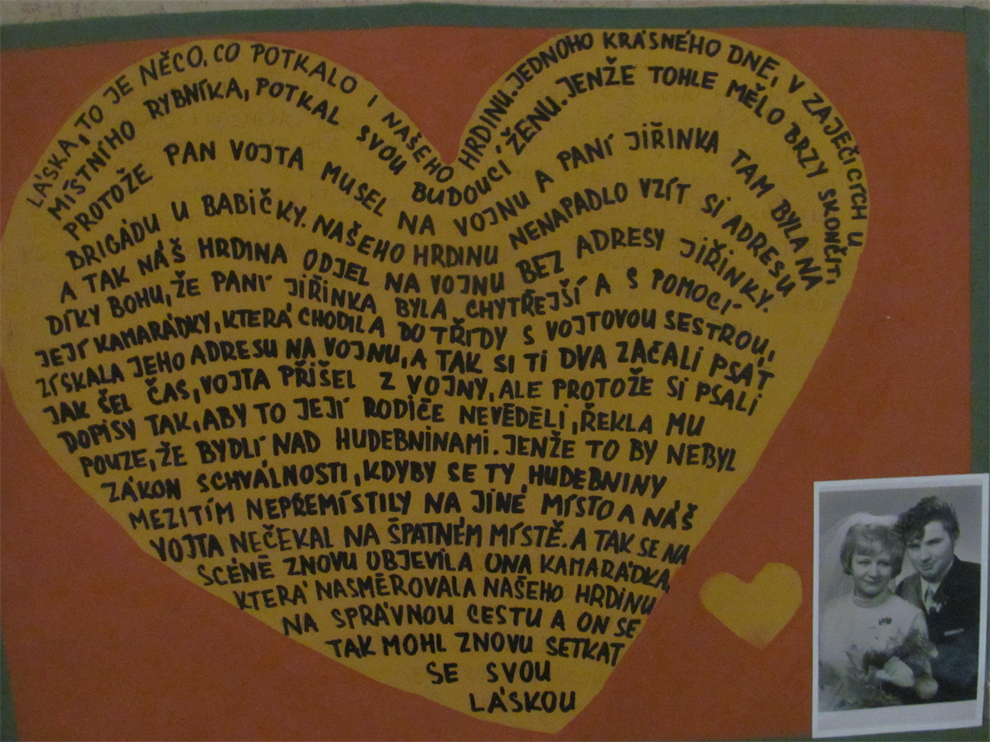 LÁSKA, TO JE NĚCO, CO POTKALO I NAŠEHO HRDINU. JEDNOHO KRÁSNÉHO DNE, V ZAJEČICÍCH U
MÍSTNÍHO RYBNÍKA, POTKAL SVOU BUDOUCÍ ŽENU. JENŽE TOHLE MĚLO BRZY SKONČIT,
PROTOŽE PAN VOJTA MUSEL NA VOJNU A PANÍ JIŘINKA TAM BYLA NA
BRIGÁDU U BABIČKY. NAŠEHO HRDINU NENAPADLO VZÍT SI ADRESU
A TAK NÁŠ HRDINA ODJEL NA VOJNU BEZ ADRESY JIŘINKY.
DÍKY BOHU, ŽE PANÍ JIŘINKA BYLA CHYTŘEJŠÍ A S POMOCÍ
JEJÍ KAMARÁDKY, KTERÁ CHODILA DO TŘÍDY S VOJTOVOU SESTROU,
ZÍSKALA JEHO ADRESU NA VOJNU, A TAK SI TI DVA ZAČALI PSÁT
JAK ŠEL ČAS, VOJTA PŘIŠEL Z VOJNY, ALE PROTOŽE SI PSALI
DOPISY TAK, ABY TO JEJÍ RODIČE NEVĚDĚLI, ŘEKLA MU
POUZE, ŽE BYDLÍ NAD HUDEBNINAMI. JENŽE TO BY NEBYL
ZÁKON SCHVÁLNOSTI, KDYBY SE TY HUDEBNINY
MEZITÍM NEPREMÍSTILY NA JINÉ MÍSTO A NÁŠ
VOJTA NEČEKAL NA ŠPATNÉM MÍSTĚ. A TAK SE NA
SCÉNĚ ZNOVU OBJEVILA ONA KAMARÁDKA,
KTERÁ NASMĚROVALA NAŠEHO HRDINU
NA SPRÁVNOU CESTU A ON SE
TAK MOHL ZNOVU SETKAT
SE SVOU
LÁSKOU